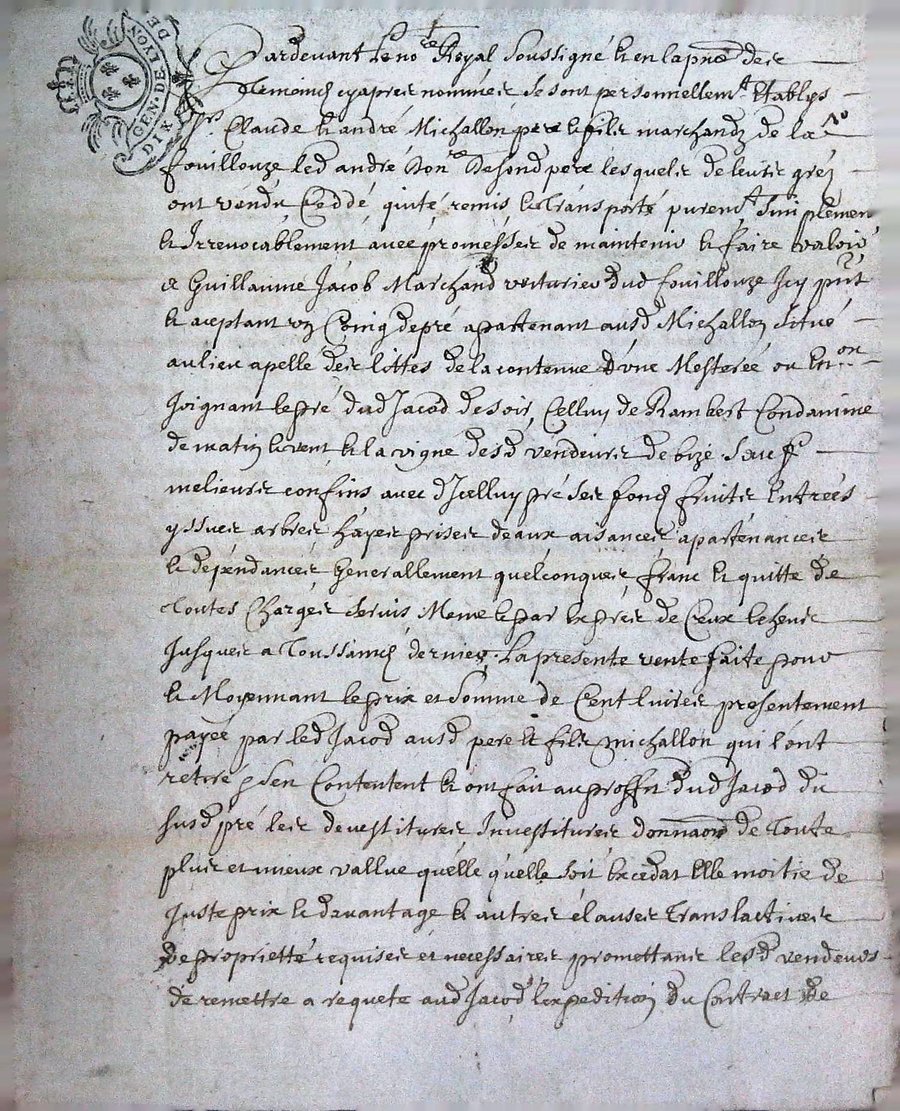 GEN. DE LYON
DIX DE
Pardevant Le no.re Royal Soussigné et en la pnce des
temoins cy apres nommés se sont personnellem.t Etablys
Srs. Claude et andré Michallon pere et fils marchandz de la
fouillouze led andré hon.re de sond pere lesquels de leurs gréz
ont vendu Ceddé quité remis et transporté purem.t Simplemen
et Irrevocablement avec promesses de maintenir et faire valoir
a Guillaume Jacod Marchand voiturier dud fouillouze Icy pnt
et aceptant un Coing de pré apartenant ausd Michallon situé
au lieu apellé des littes de la contenue d'une Mesterée ou en.on
Joignant le pré dud Jacod de soir, Celluy de Rambert Condamine
de matin et vent et la vigne desd vendeurs de bize Sauf
melieurs confins avec d'Icelluy pré ses fonds fruits Entrées
yssues arbres hayes prises deaux aisances apartenances
et dépendances Generallement quelconques franc et quitte de
toutes Charges servis Meme et par Exprés de Ceux Echeus
Jusques a Toussainct dernier. La presente vente faite pour
et Moyennant le prix et Somme de Cent livres presentement
payée par led Jacod ausd pere et fils michallon qui l'ont
retiré s'en Contentent et ont fait au proffit dud Jacod du
susd pré les devestitures Investitures donnaon de Toute
plus et mieux vallue quelle quelle soit Excedat Elle moitie de
Juste prix et davantage et autres clauses Translactives
de proprietté requises et necessaires promettans lesd vendeurs
de remettre a requete aud Jacod l'expedition du Contract de